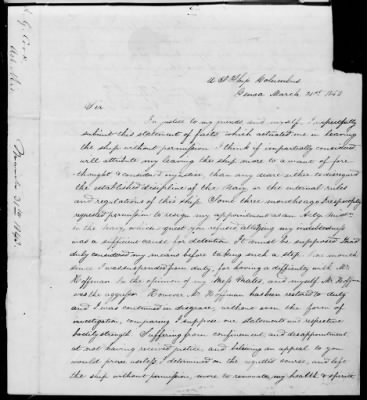 U S Ship Columbus
Genoa March 31st 1843
Sir
In justice to my friends and myself I respectfully
submit this statement of facts which actuated me in leaving
the ship without permission I think if impartially considered
will attribute my leaving the ship more to a want of fore
thought & considered injustice, than any desire either to disregard
the established discipline of the Navy or the internal rules
and regulations of this ship. Some three months ago I respectfully
requested permission to resign my appointment as an Actg Mids-
in the Navy, which request you refused alledging my indebtedness
was a sufficient cause for detention It must be supposed I had
duly considered my means before taking such a step. One month
since I was suspended from duty, for having a difficulty with Mr
Hoffman In the opinion of my Mess Mates, and myself Mr Hoffman
was the aggressor However Mr Hoffman has been restored to duty
and I was continued in disgrace, without even the form of
investigation, comparing I suppose our statements and respective
bodily strength Suffering from confinement, and disappointment
at not having received justice, and believing an appeal to you
would prove useless, I determined on the course, and left
the ship without permission, more to renovate my health & spirits